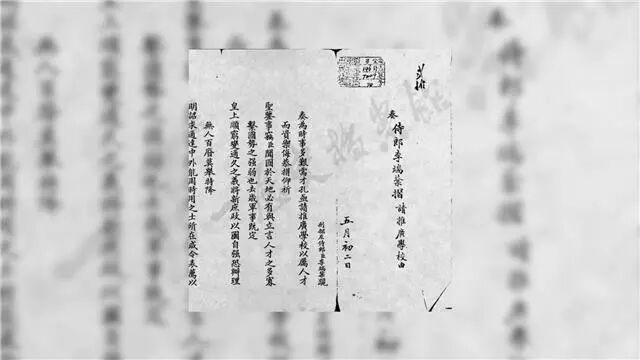 奏 侍郎李端棻摺 請推廣學校由
五月初二日
刑部左侍郎臣李端棻跪
奏為時事多艱需才孔亟請推廣學校以厲人才
而資禦侮恭摺仰祈
聖鑒事竊臣聞國於天地必有與立言人才之多寡
繫國勢之强弱也去歲軍事既定
皇上順窮變通久之義將新庶政以圖自强恐辦理
無人百廢莫舉特降
明詔求通達中外能周時用之士所在咸令表薦以